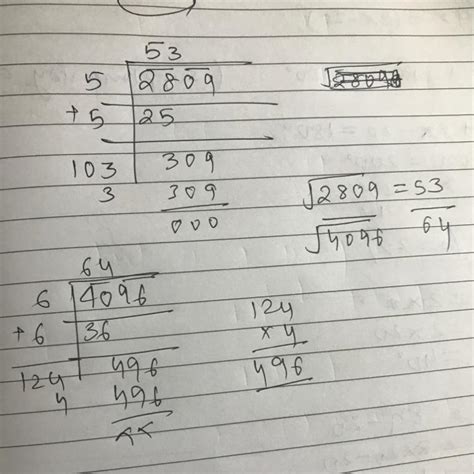 53
5 2809 √2809
+5 25
103 309
3 309
000
√2809 = 53
√4096 64
64
6 4096
+6 36
124 496
4 496
××
124
×4
496